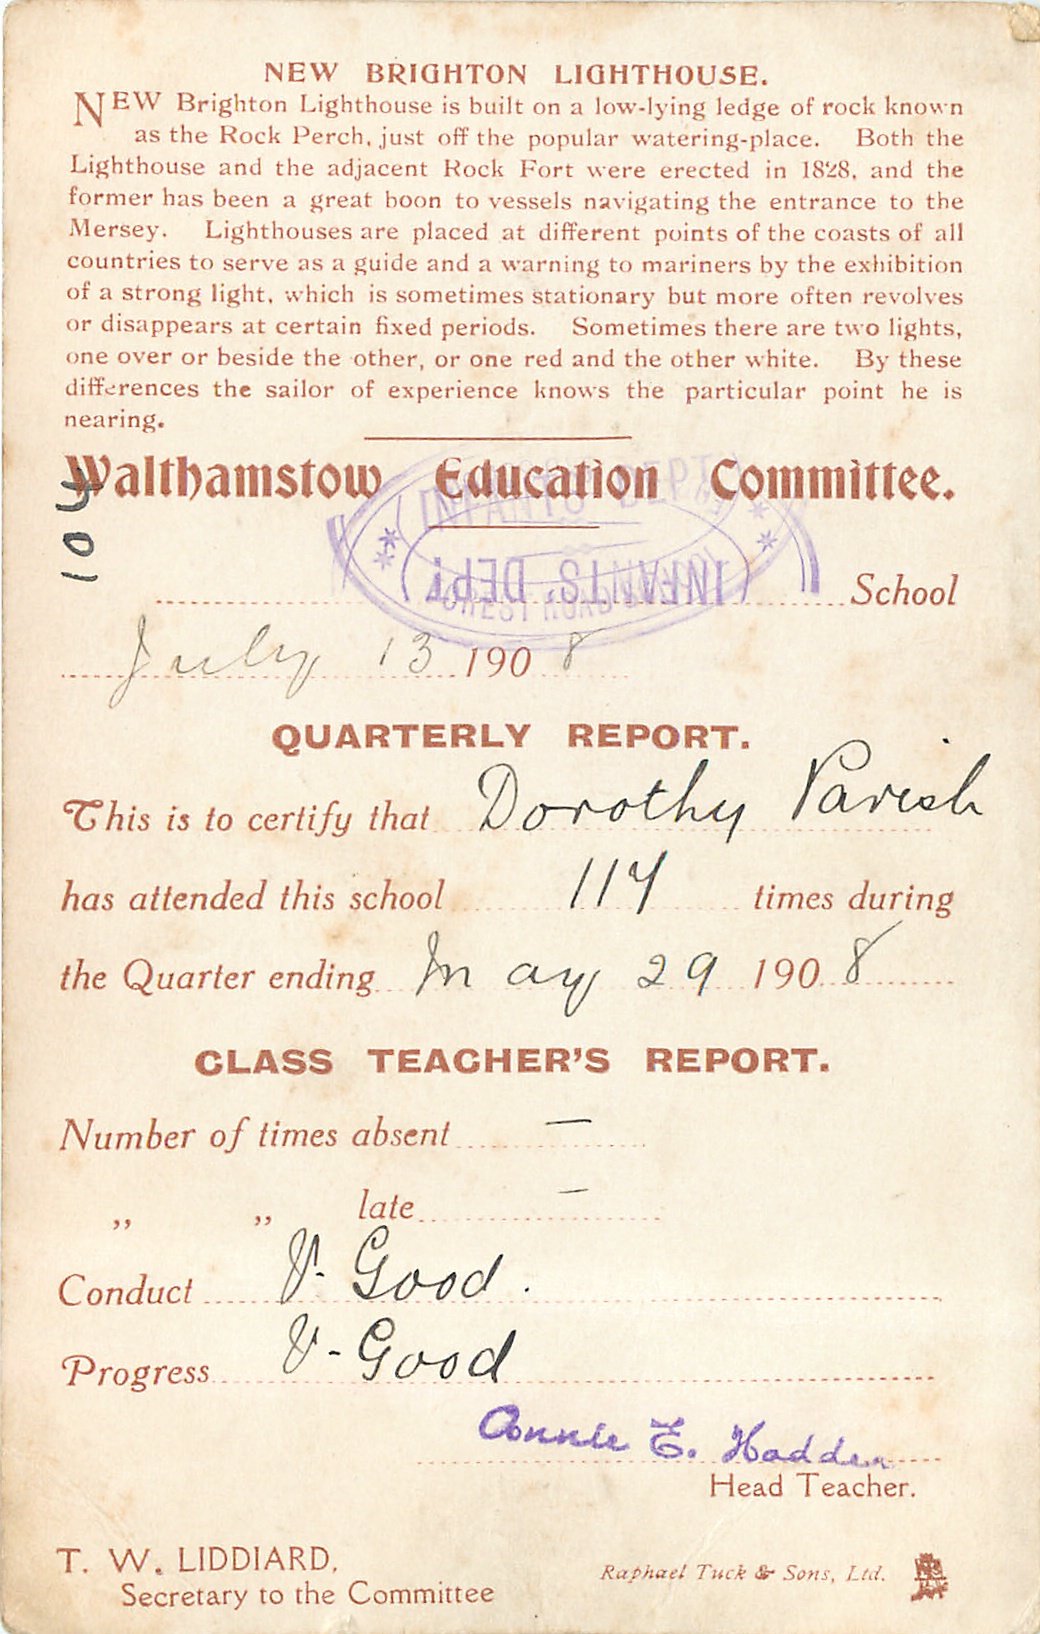 NEW BRIGHTON LIGHTHOUSE.
NEW Brighton Lighthouse is built on a low-lying ledge of rock known
as the Rock Perch, just off the popular watering-place. Both the
Lighthouse and the adjacent Rock Fort were erected in 1828, and the
former has been a great boon to vessels navigating the entrance to the
Mersey. Lighthouses are placed at different points of the coasts of all
countries to serve as a guide and a warning to mariners by the exhibition
of a strong light, which is sometimes stationary but more often revolves
or disappears at certain fixed periods. Sometimes there are two lights,
one over or beside the other, or one red and the other white. By these
differences the sailor of experience knows the particular point he is
nearing.
Walthamstow Education Committee.
INFANTS' DEPT
INFANTS' DEPT
FOREST ROAD
School
July 13 1908
QUARTERLY REPORT.
This is to certify that Dorothy Parish
has attended this school 114 times during
the Quarter ending May 29 1908
CLASS TEACHER'S REPORT.
Number of times absent —
„ „ late —
Conduct V. Good.
Progress V-Good
Annie E. Hadden
Head Teacher.
T. W. LIDDIARD,
Secretary to the Committee
Raphael Tuck & Sons, Ltd.